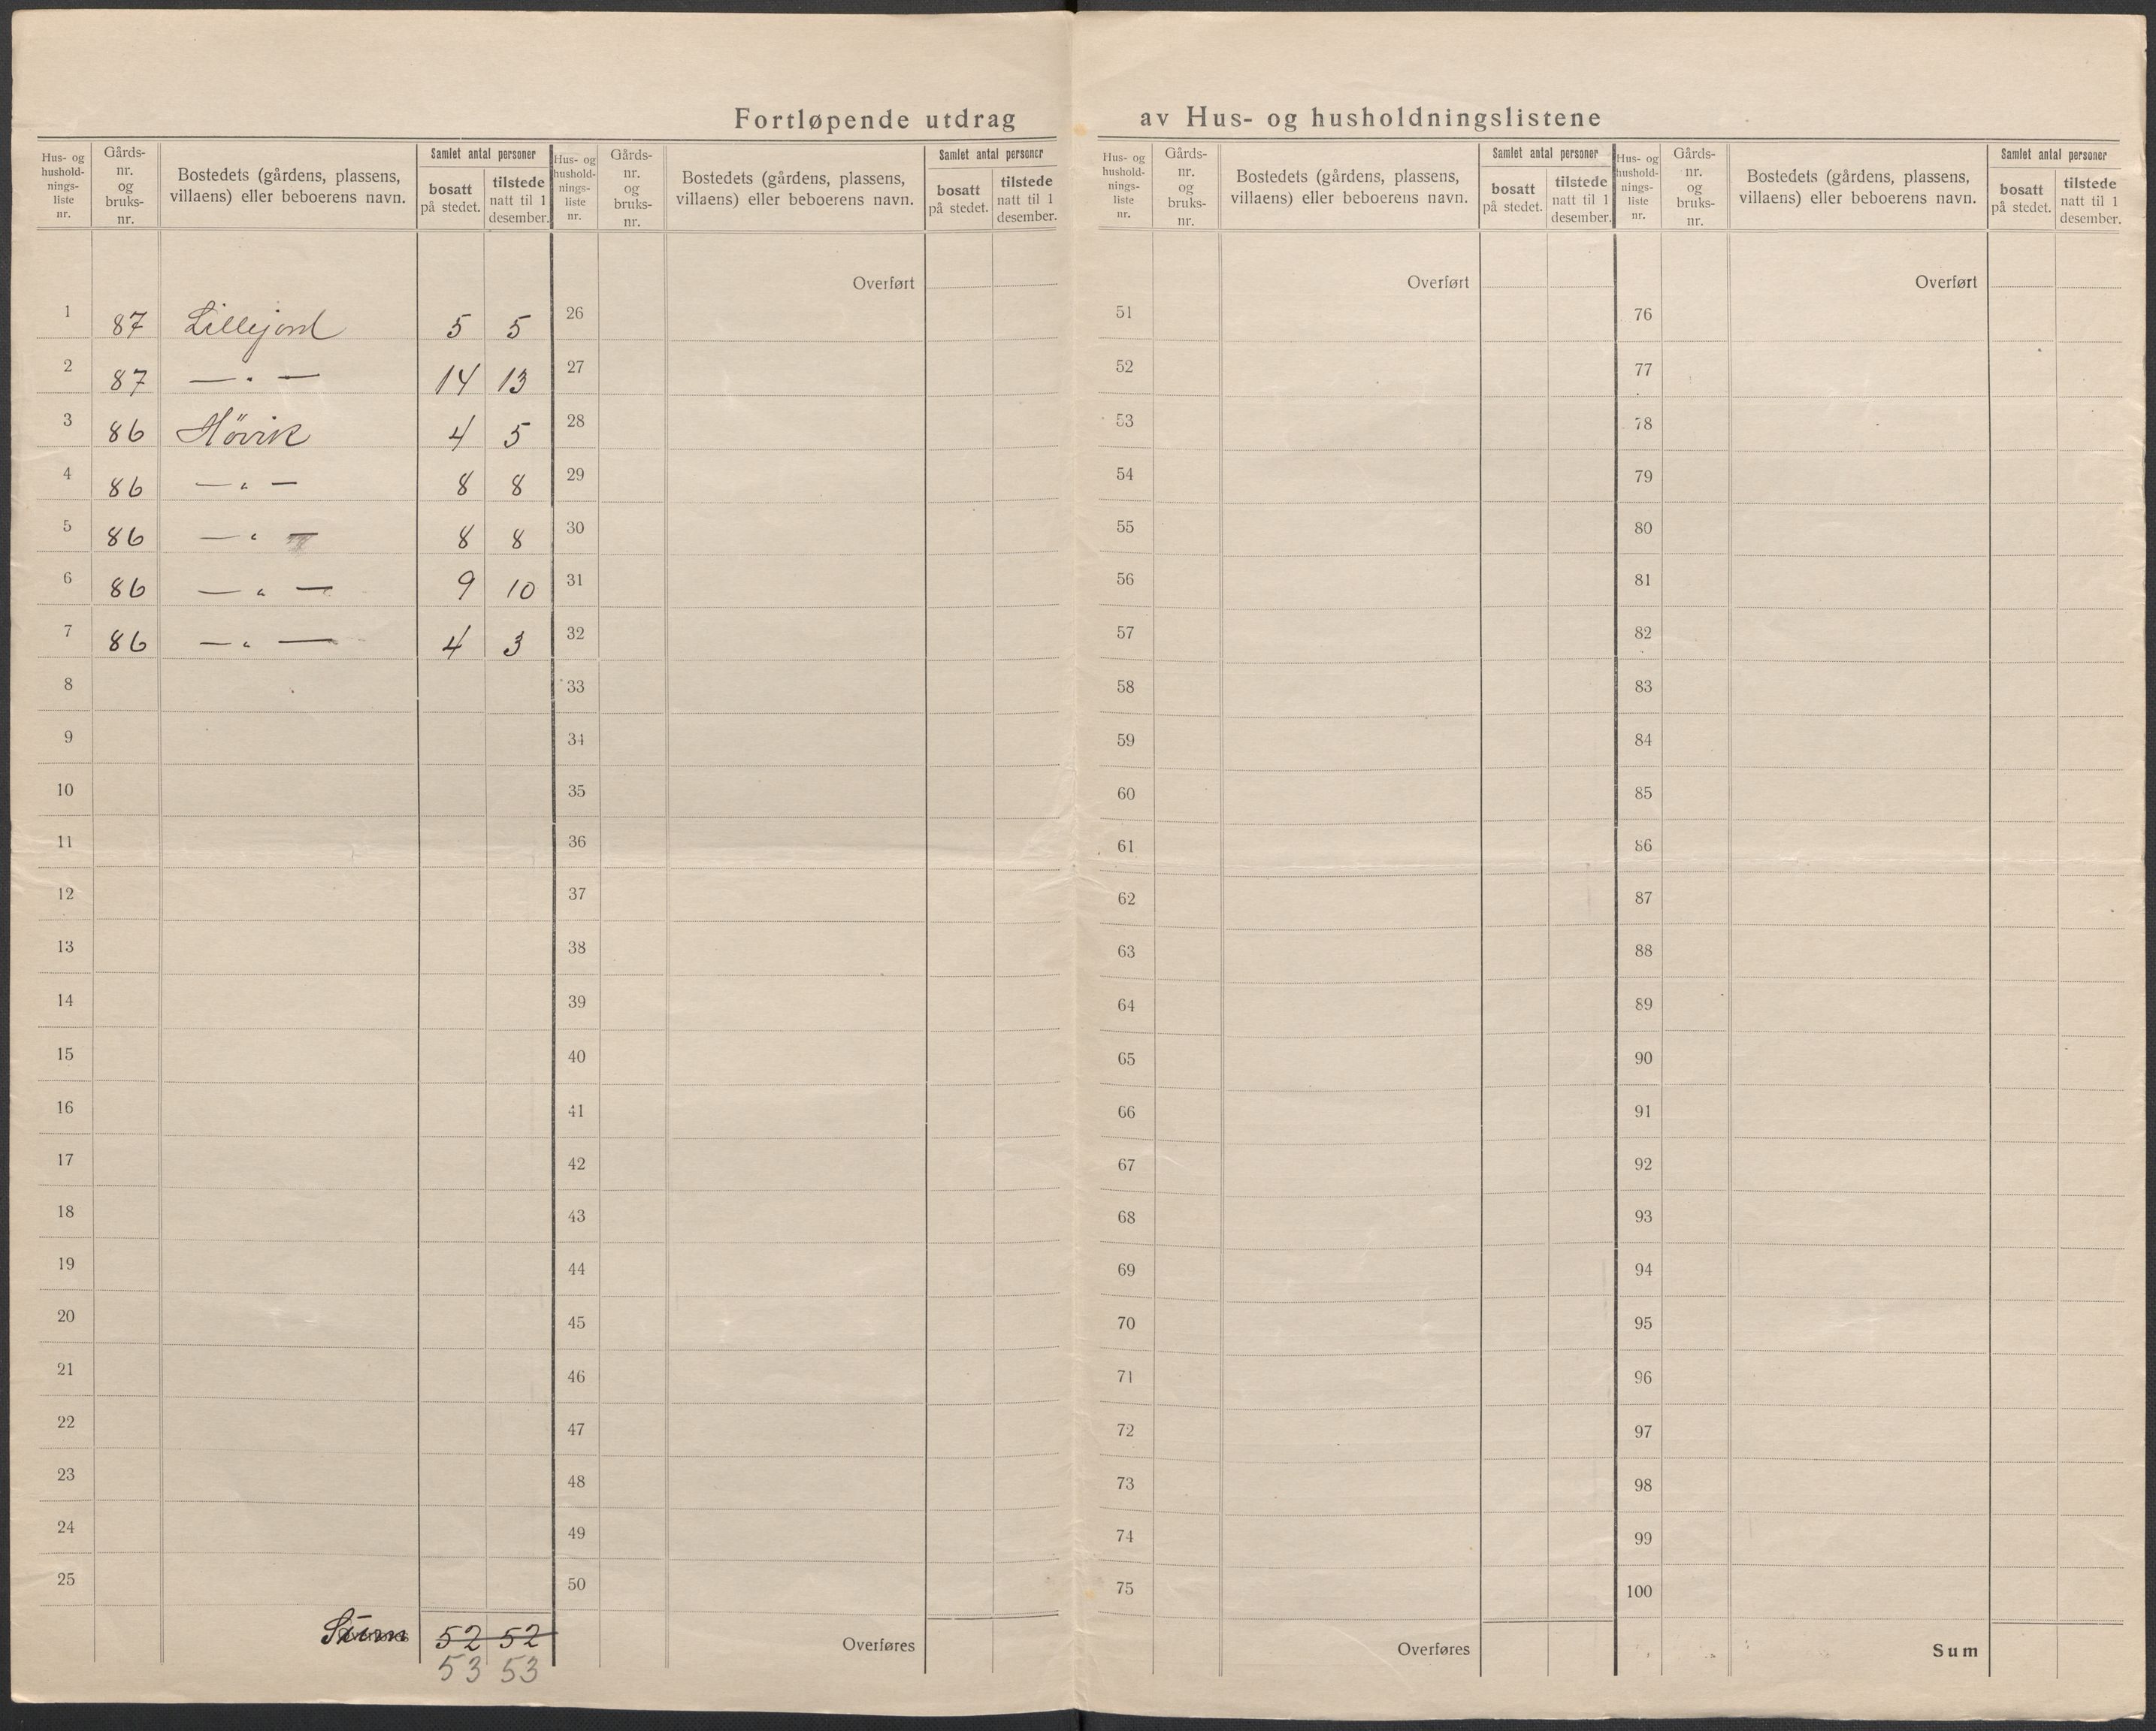 Fortløpende utdrag av Hus- og husholdningslistene
Hus- og hushold-nings-liste nr. | Gårds-nr. og bruks-nr. | Bostedets (gårdens, plassens, villaens) eller beboerens navn. | Samlet antal personer | bosatt på stedet. | tilstede natt til 1 desember.
Hus- og hushold-nings-liste nr. | Gårds-nr. og bruks-nr. | Bostedets (gårdens, plassens, villaens) eller beboerens navn. | Samlet antal personer | bosatt på stedet. | tilstede natt til 1 desember.
Hus- og hushold-nings-liste nr. | Gårds-nr. og bruks-nr. | Bostedets (gårdens, plassens, villaens) eller beboerens navn. | Samlet antal personer | bosatt på stedet. | tilstede natt til 1 desember.
Hus- og hushold-nings-liste nr. | Gårds-nr. og bruks-nr. | Bostedets (gårdens, plassens, villaens) eller beboerens navn. | Samlet antal personer | bosatt på stedet. | tilstede natt til 1 desember.
1 87 Lillejord 5 5
2 87 — " — 14 13
3 86 Hövik 4 5
4 86 — " — 8 8
5 86 — " — 8 8
6 86 — " — 9 10
7 86 — " — 4 3
8
9
10
11
12
13
14
15
16
17
18
19
20
21
22
23
24
25
Sum 52 52
53 53
Overført
26
27
28
29
30
31
32
33
34
35
36
37
38
39
40
41
42
43
44
45
46
47
48
49
50
Overføres
Overført
51
52
53
54
55
56
57
58
59
60
61
62
63
64
65
66
67
68
69
70
71
72
73
74
75
Overføres
Overført
76
77
78
79
80
81
82
83
84
85
86
87
88
89
90
91
92
93
94
95
96
97
98
99
100
Sum